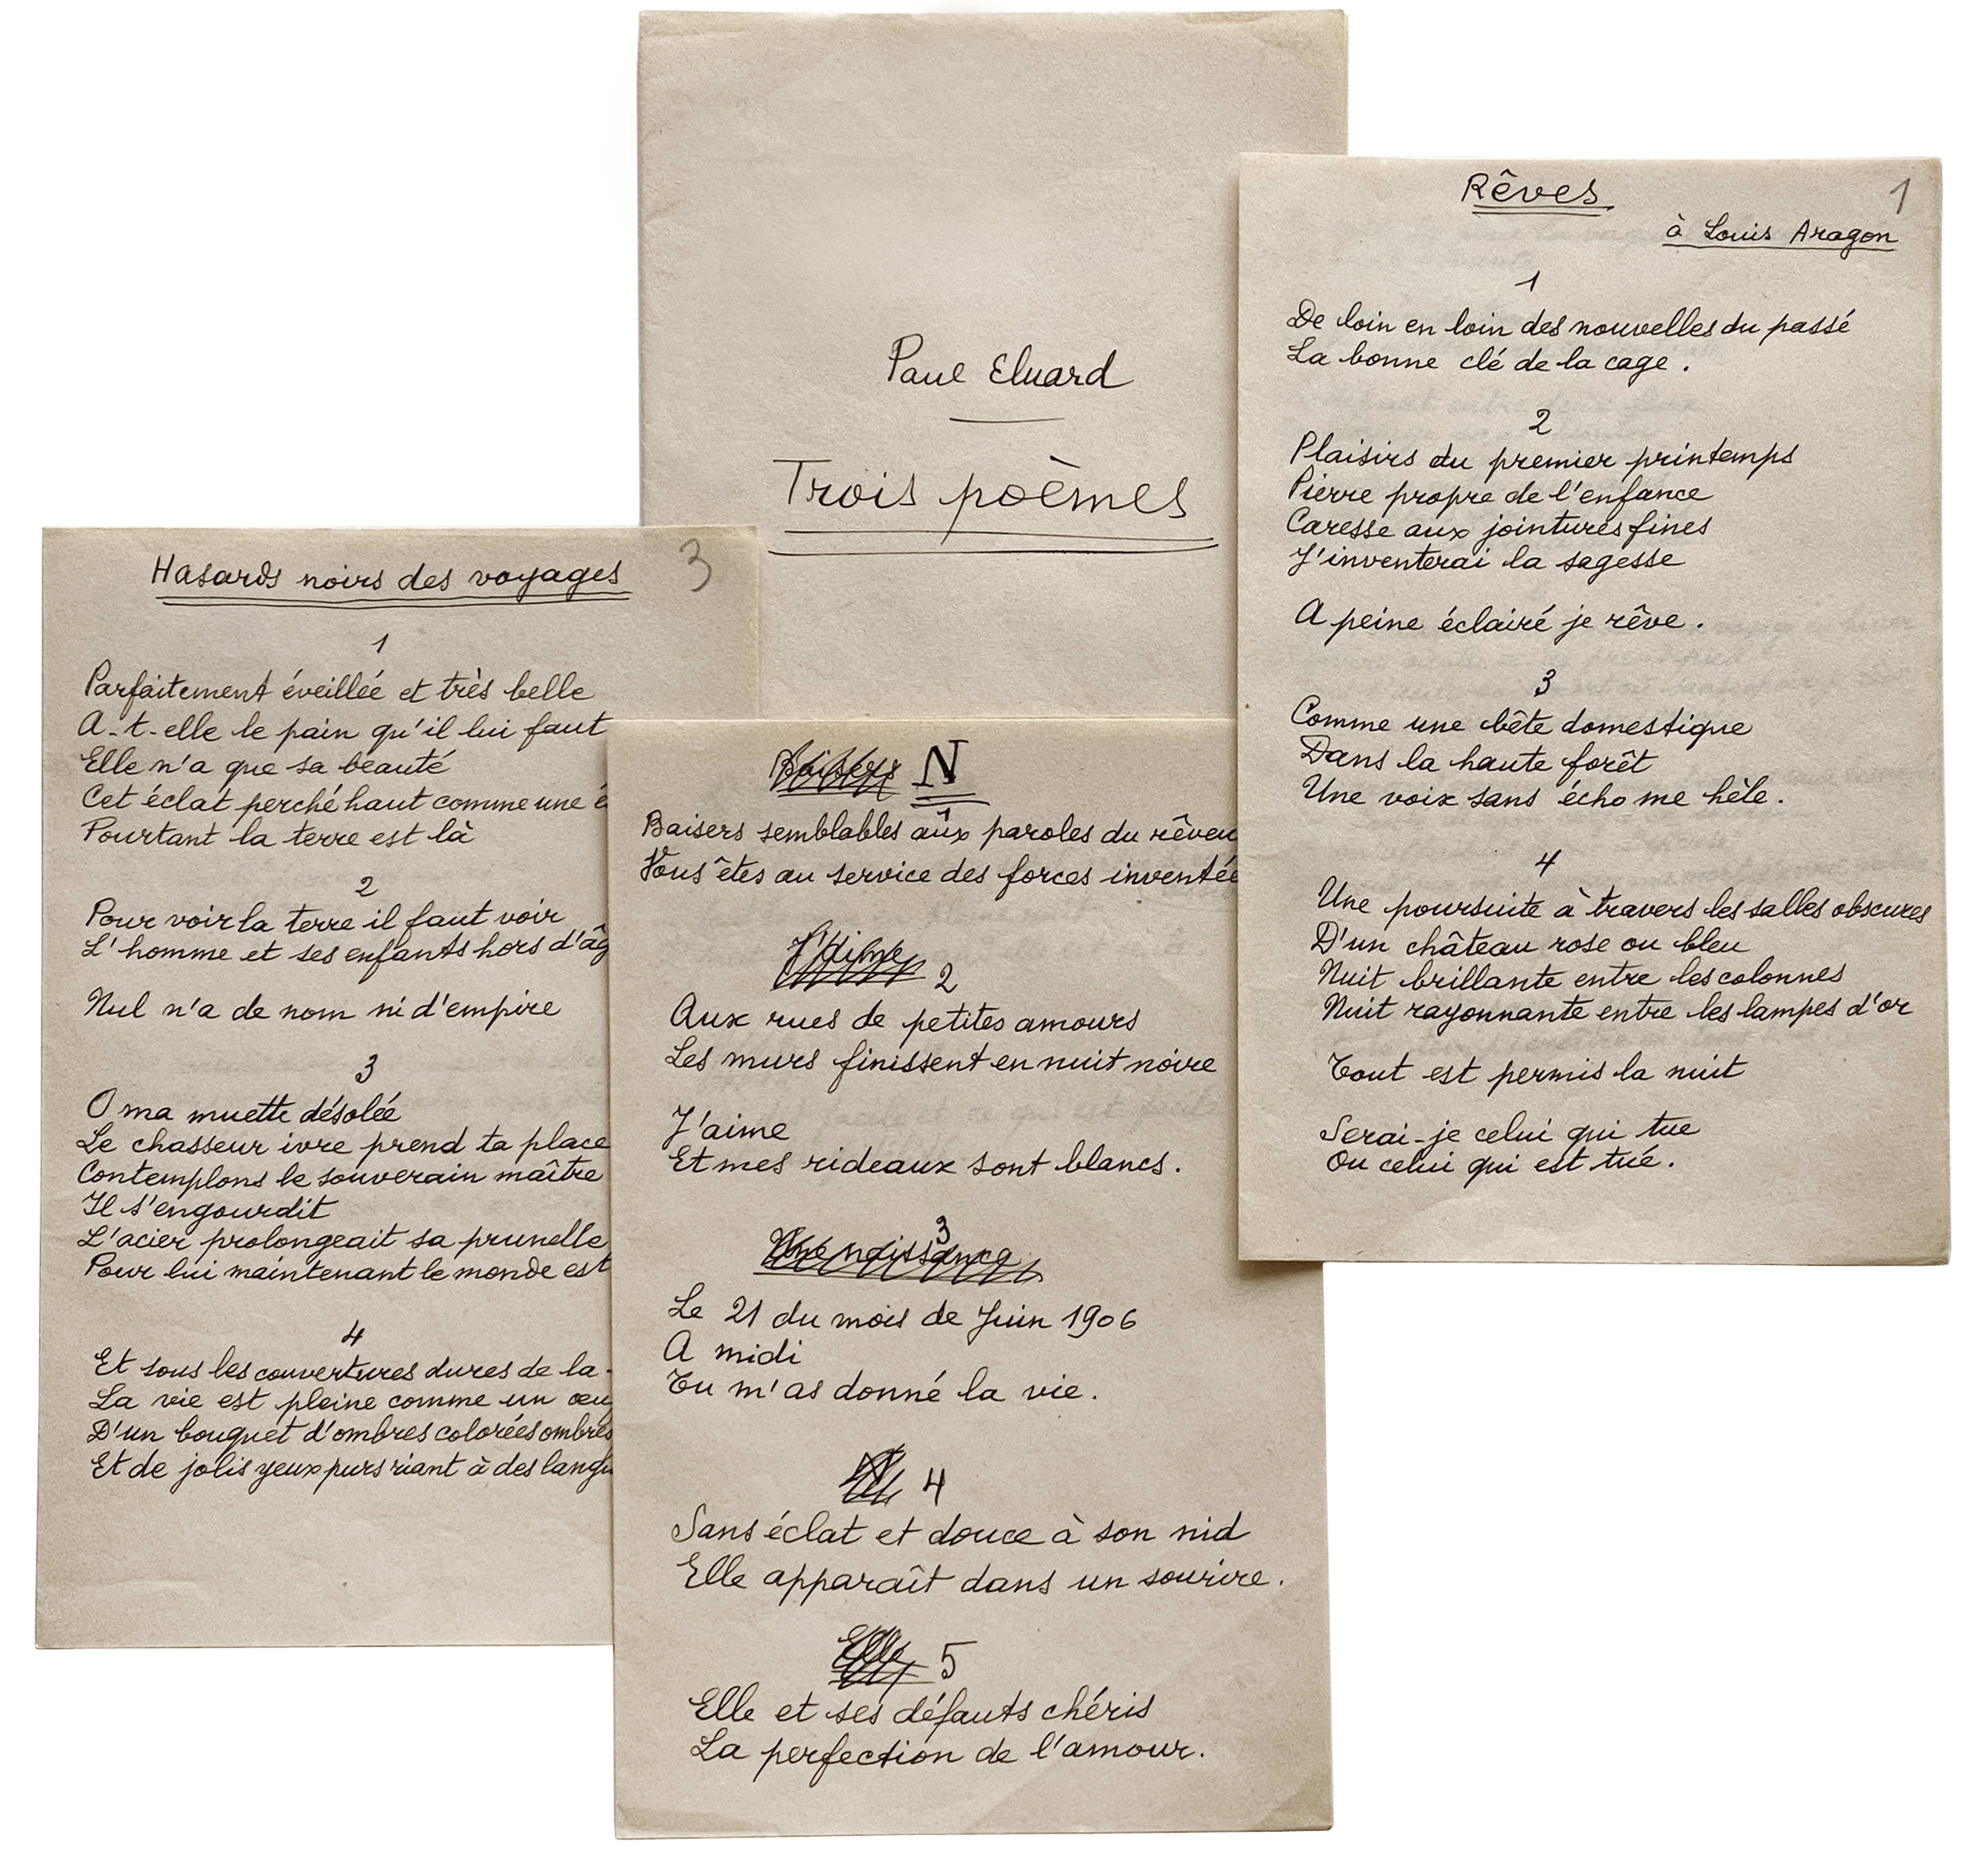 Paul Eluard
Trois poèmes
Rêves
1
à Louis Aragon
1
De loin en loin des nouvelles du passé
La bonne clé de la cage.
2
Plaisirs du premier printemps
Pierre propre de l'enfance
Caresse aux jointures fines
J'inventerai la sagesse
A peine éclairé je rêve.
3
Comme une bête domestique
Dans la haute forêt
Une voix sans écho me hèle.
4
Une poursuite à travers les salles obscures
D'un château rose ou bleu
Nuit brillante entre les colonnes
Nuit rayonnante entre les lampes d'or
Tout est permis la nuit
Serai-je celui qui tue
Ou celui qui est tué.
Baisers N
Baisers semblables aux paroles du
Vous êtes au service des forces
J'aime 2
Aux rues de petites amours
Les murs finissent en nuit noire
J'aime
Et mes rideaux sont blancs.
Une naissance 3
Le 21 du mois de Juin 1906
A midi
Tu m'as donné la vie.
N 4
Sans éclat et douce à son nid
Elle apparaît dans un sourire.
Elle 5
Elle et ses défauts chéris
La perfection de l'amour.
Hasards noirs des voyages
3
1
Parfaitement éveillée et très belle
A-t-elle le pain qu'il lui faut
Elle n'a que sa beauté
Cet éclat perché haut comme une
Pourtant la terre est là
2
Pour voir la terre il faut voir
L'homme et ses enfants hors
Nul n'a de nom ni d'empire
3
O ma muette désolée
Le chasseur ivre prend ta place
Contemplons le souverain maître
Il s'engourdit
L'acier prolongeait sa prunelle
Pour lui maintenant le monde est
4
Et sous les couvertures dures de la
La vie est pleine comme un
D'un bouquet d'ombres colorées ombres
Et de jolis yeux purs riant à des